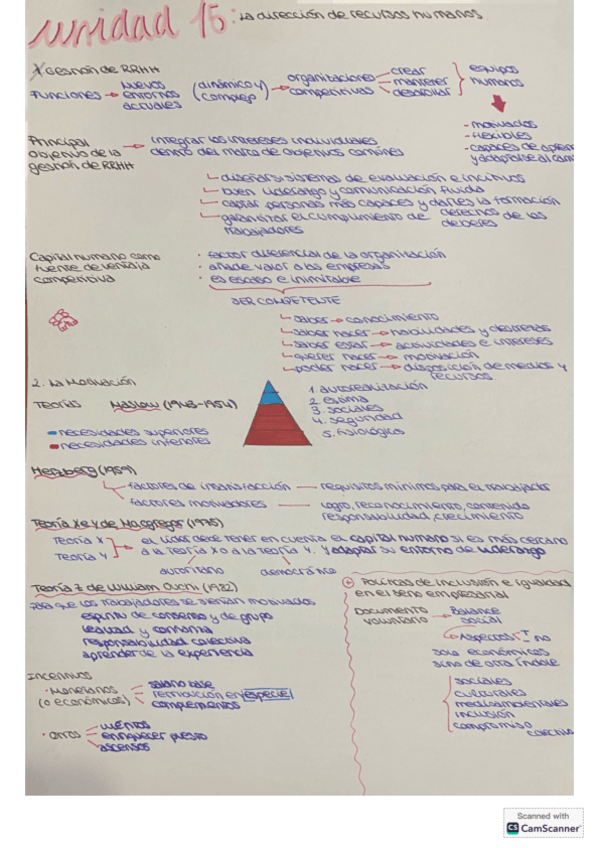 Unidad 15: La dirección de recursos humanos
1. Gestión de RRHH
Funciones → nuevos entornos actuales (dinámico y complejo) → organizaciones competitivas crear mantener desarrollar equipos humanos
- motivados
- flexibles
- capaces de
y adaptarse al
Principal objetivo de la gestión de RRHH → integrar los intereses individuales
dentro del marco de objetivos comunes
diseñar sistemas de evaluación e incentivos
buen liderazgo y comunicación fluida
captar personas más capaces y darles la formación
garantizar el cumplimiento de derechos de los
deberes
trabajadores
Capital humano como fuente de ventaja competitiva
· factor diferencial de la organización
· añade valor a las empresas
· es escaso e inimitable
SER COMPETENTE
saber → conocimiento
saber hacer → habilidades y destrezas
saber estar → actividades e intereses
querer hacer → motivación
poder hacer → disposición de medios y
recursos.
2. La Motivación
Teorías Maslow (1943-1954)
necesidades superiores
necesidades inferiores
1. autorrealización
2. estima
3. sociales
4. seguridad
5. fisiológico
Herzberg (1959)
factores de insatisfacción — requisitos mínimos para el trabajador
factores motivadores — logro, reconocimiento, contenido
responsabilidad, crecimiento
Teoría X e Y de Macgregor (1975)
Teoría X
Teoría Y
el líder debe tener en cuenta el capital humano si es más cercano
a la teoría X o a la teoría Y. y adaptar su entorno de liderazgo
autoritario democrático
Teoría Z de William Ouchi (1982)
para que los trabajadores se sientan motivados
espíritu de consenso y de grupo
lealtad y confianza
responsabilidad colectiva
aprender de la experiencia
Incentivos
· Monetarios
(o económicos)
salario base
retribución en especie
complementos
· otros
méritos
enriquecer puesto
ascensos
+ Políticas de inclusión e igualdad
en el seno empresarial
Documento voluntario → Balance social
→ Aspectos no
solo económicos
sino de otra índole
sociales
culturales
medioambientales
inclusión
compromiso
colectivo
Scanned with
CS CamScanner